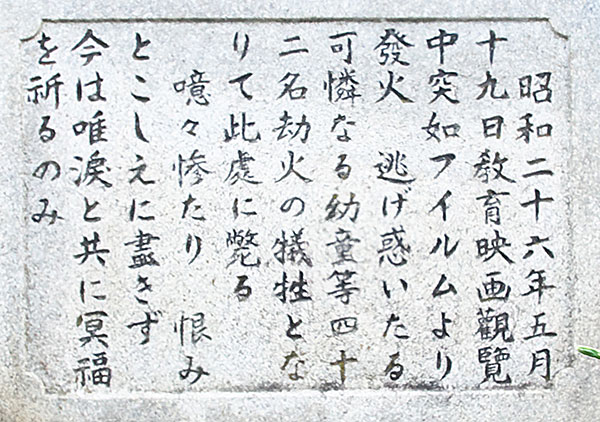 昭和二十六年五月
十九日教育映画觀覽
中突如フイルムより
發火　逃げ惑いたる
可憐なる幼童等四十
二名劫火の犠牲とな
りて此處に斃る
噫々惨たり　恨み
とこしえに盡きず
今は唯淚と共に冥福
を祈るのみ